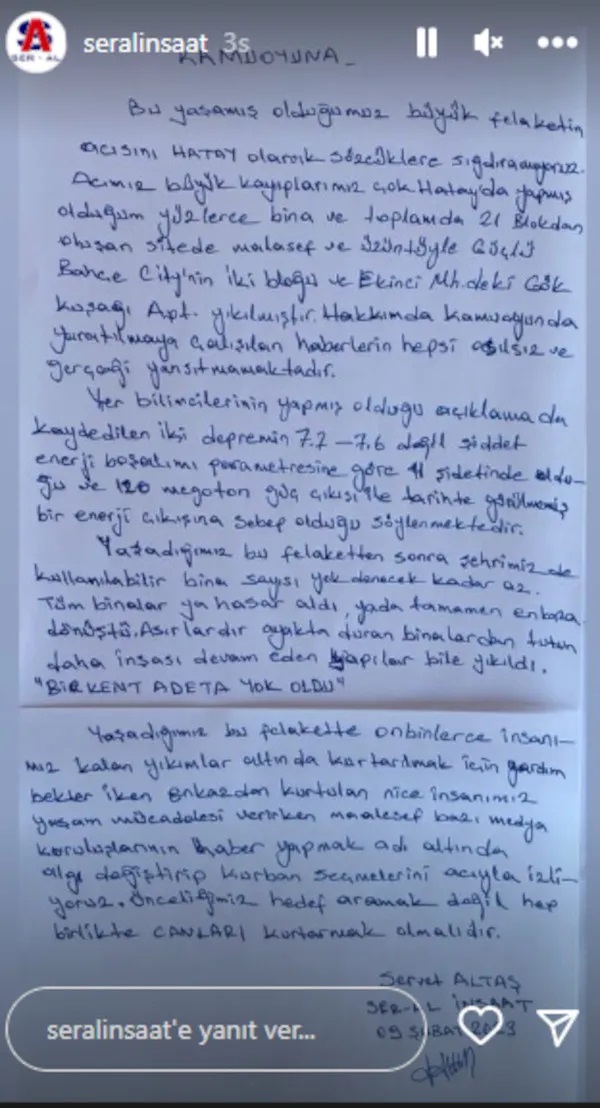 SA
SER - AL
seralinsaat 3s
KAMUOYUNA_
Bu yaşamış olduğumuz büyük felaketin
acısını HATAY olarak sözcüklere sığdıramıyoruz.
Acımız büyük kayıplarımız çok. Hatay'da yapmış
olduğum yüzlerce bina ve toplamda 21 Blokdan
oluşan sitede malasef ve üzüntüyle Güçlü
Bahçe City'nin iki bloğu ve Ekinci Mh.deki Gök
kuşağı Apt. yıkılmıştır. Hakkımda kamuoyunda
yaratılmaya çalışılan haberlerin hepsi asılsız ve
gerçeği yansıtmamaktadır.
Yer bilimcilerinin yapmış olduğu açıklamada
kaydedilen iki depremin 7.7 - 7.6 değil şiddet
enerji boşalımı parametresine göre 11 şidetinde oldu-
ğu ve 120 megoton güç çıkışı ile tarihte görülmemiş
bir enerji çıkışına sebep olduğu söylenmektedir.
Yaşadığımız bu felaketten sonra şehrimizde
kullanılabilir bina sayısı yok denecek kadar az.
Tüm binalar ya hasar aldı, yada tamamen enkaza
dönüştü. Asırlardır ayakta duran binalardan tutun
daha inşası devam eden yapılar bile yıkıldı.
"BİR KENT ADETA YOK OLDU"
Yaşadığımız bu felakette onbinlerce insanı-
mız kalan yıkımlar altında kurtarılmak için yardım
bekler iken enkazdan kurtulan nice insanımız
yaşam mücadelesi verirken maalesef bazı medya
kuruluşlarının haber yapmak adı altında
algı değiştirip kurban seçmelerini acıyla izli-
yoruz. Önceliğimiz hedef aramak değil hep
birlikte CANLARI kurtarmak olmalıdır.
Servet ALTAŞ
SER-AL İNŞAAT
09 ŞUBAT 2023
seralinsaat'e yanıt ver...